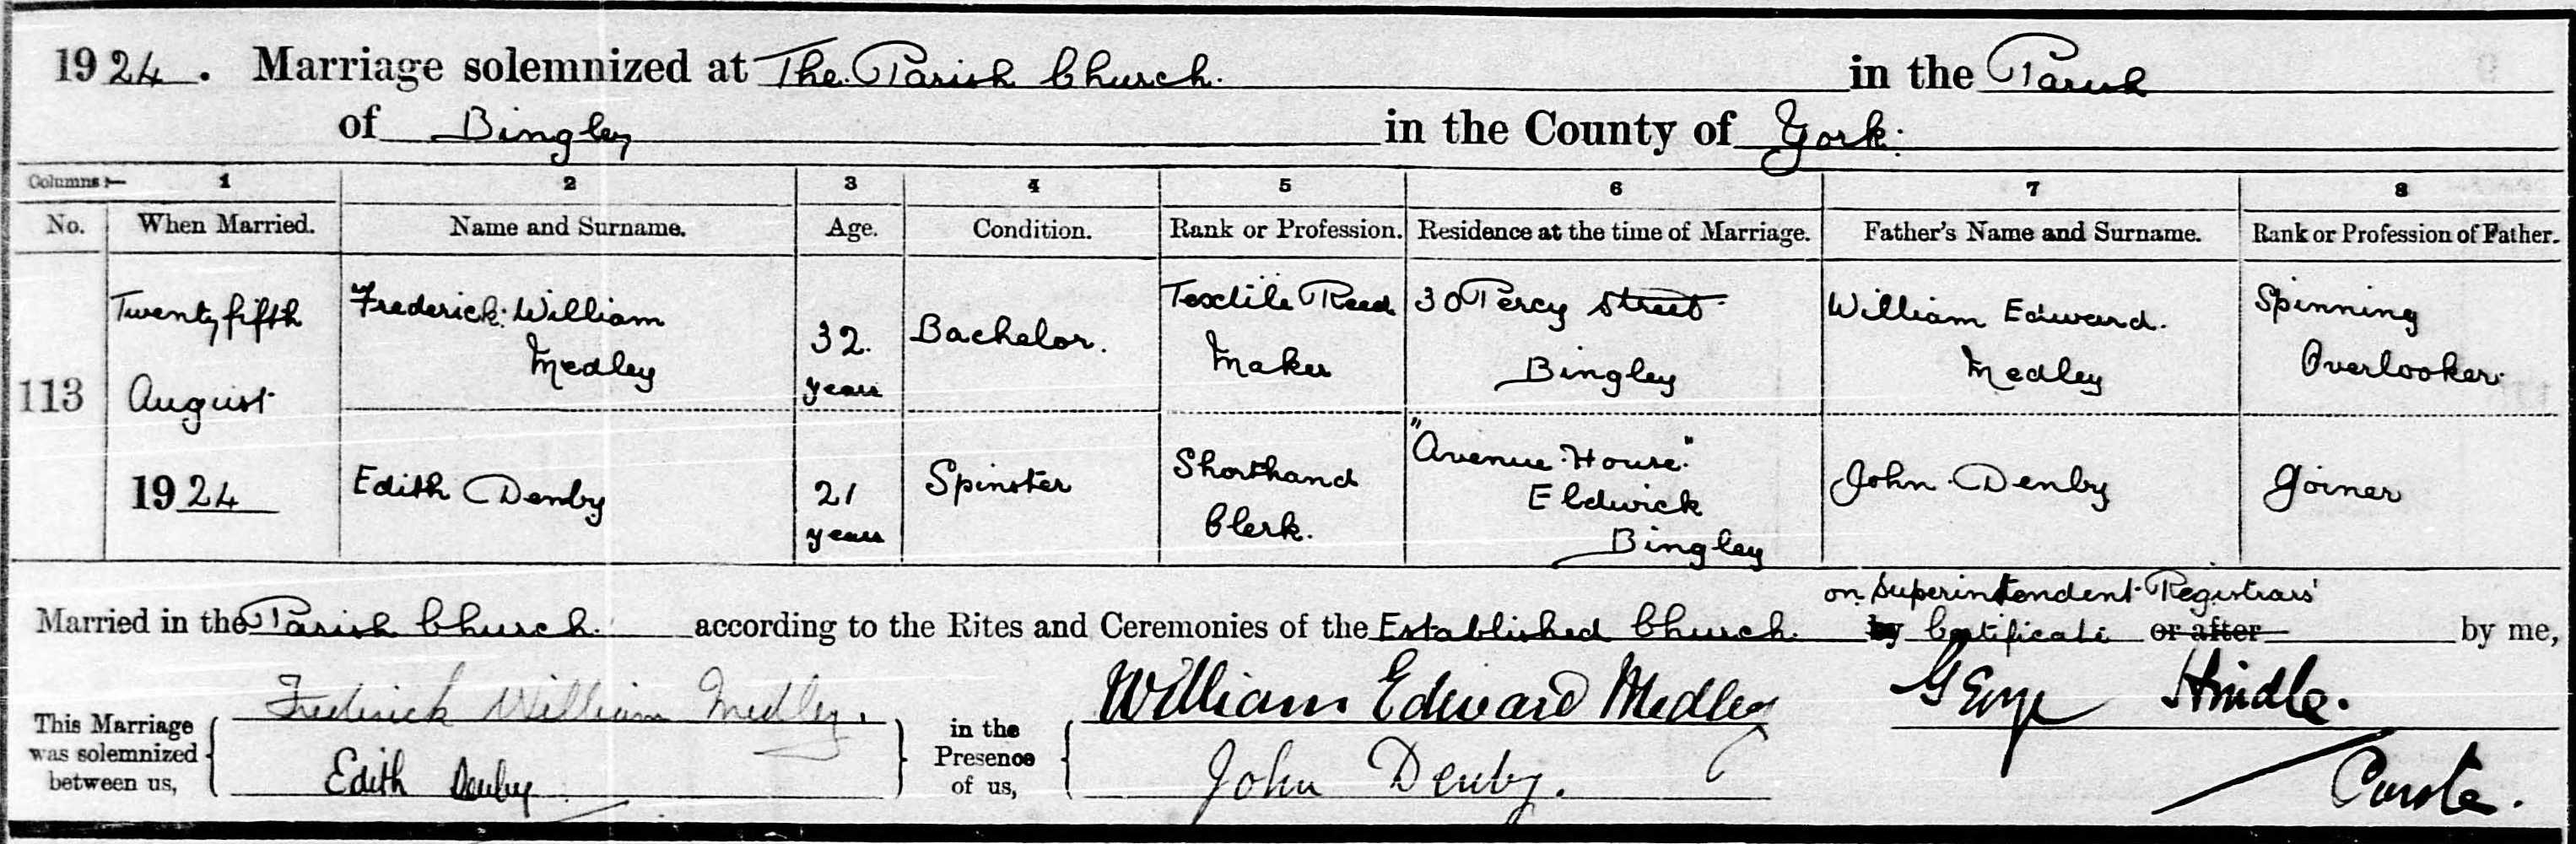 1924. Marriage solemnized at The Parish Church. in the Parish
of Bingley in the County of York.
Columns:— 1 2 3 4 5 6 7 8
No. When Married. Name and Surname. Age. Condition. Rank or Profession. Residence at the time of Marriage. Father's Name and Surname. Rank or Profession of Father.
113
Twenty fifth
August
1924
Frederick William
Medley
32.
years
Bachelor.
Textile Reed
Maker
30 Percy Street
Bingley
William Edward.
Medley
Spinning
Overlooker
Edith Denby
21
years
Spinster
Shorthand
Clerk.
"Avenue House"
Eldwick
Bingley
John Denby
Joiner
on Superintendent Registrars'
Married in the Parish Church. according to the Rites and Ceremonies of the Established Church. by Certificate or after by me,
This Marriage
was solemnized
between us,
Frederick William Medley.
Edith Denby
in the
Presence
of us,
William Edward Medley
John Denby.
George Hindle.
Curate.